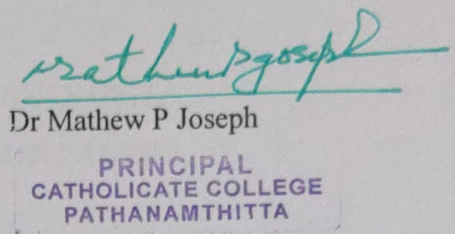 Mathew P Joseph
Dr Mathew P Joseph
PRINCIPAL
CATHOLICATE COLLEGE
PATHANAMTHITTA